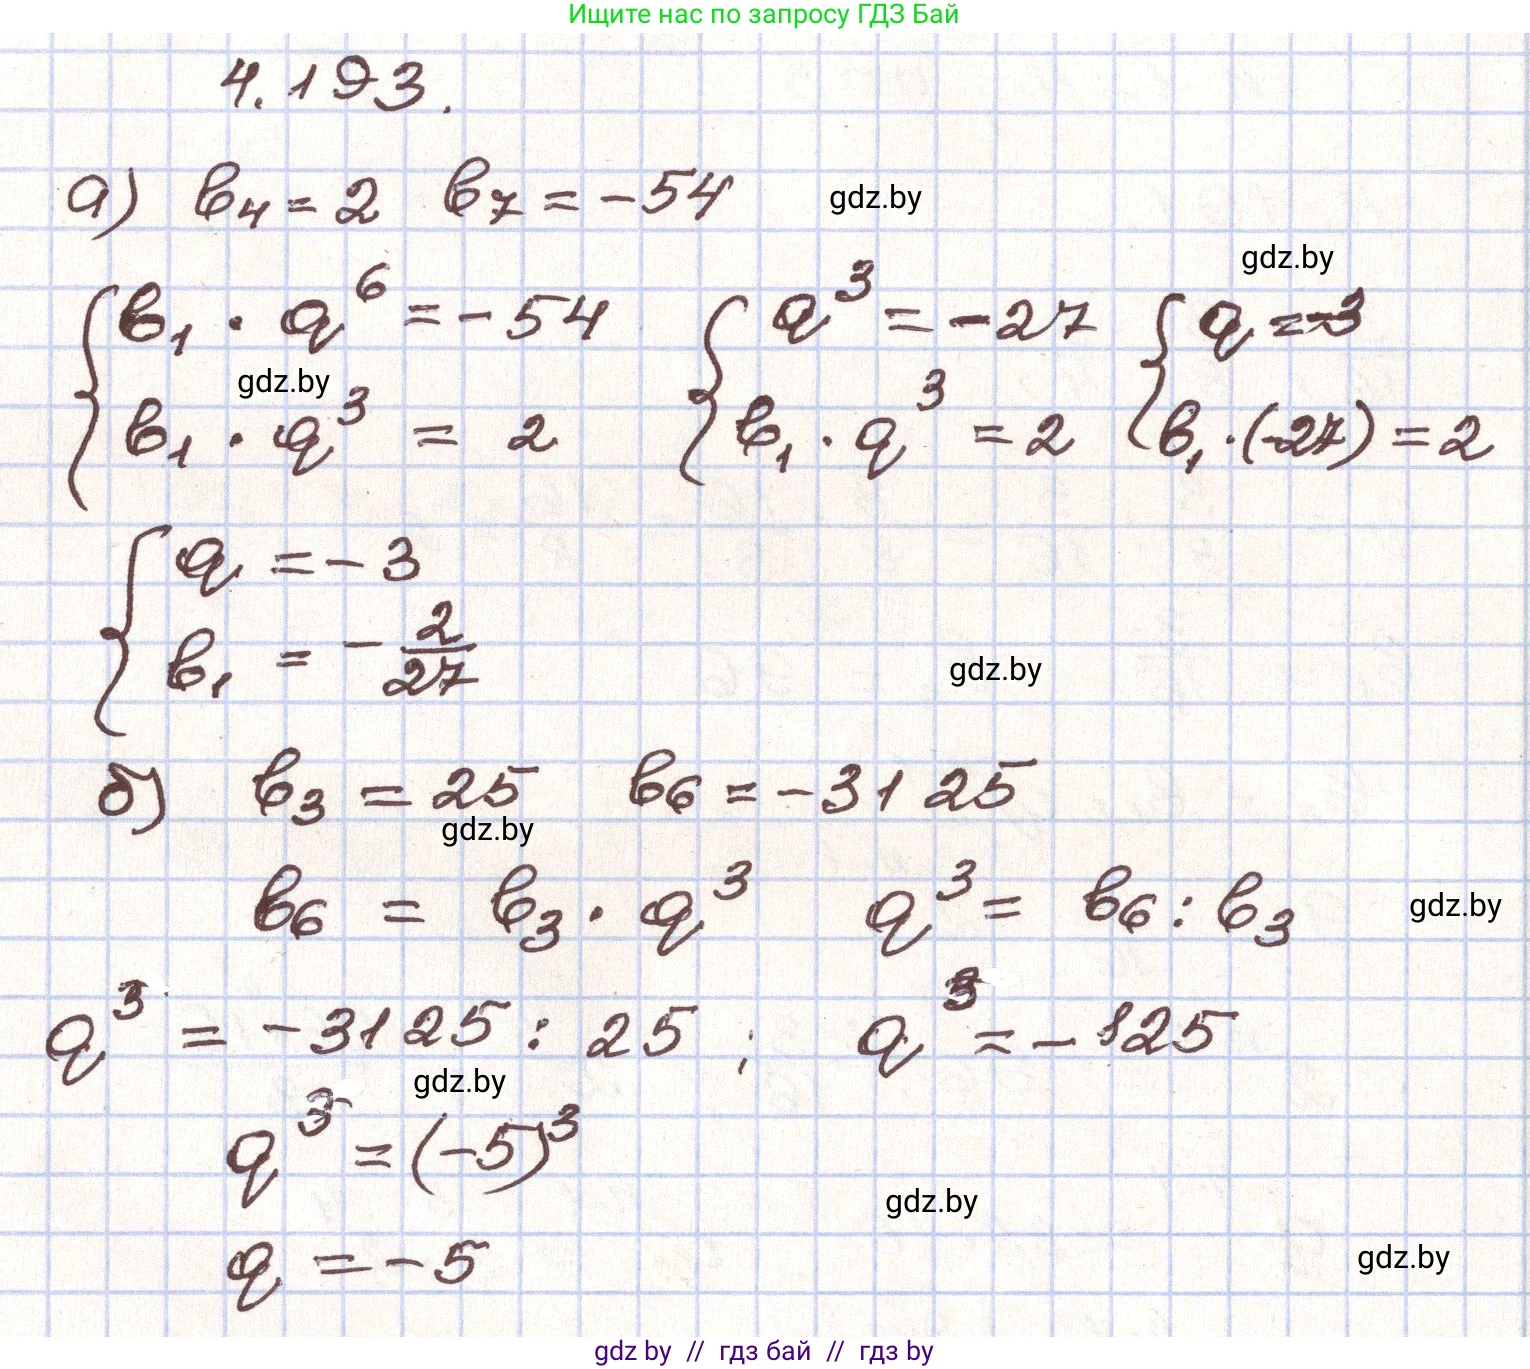 Ищите нас по запросу ГДЗ Бай
4.193.
а) b₄ = 2 b₇ = -54 gdz.by
gdz.by
{ b₁ · q⁶ = -54 { q³ = -27 { q = -3
gdz.by
b₁ · q³ = 2 b₁ · q³ = 2 b₁ · (-27) = 2
{ q = -3
b₁ = - 2/27 gdz.by
б) b₃ = 25 b₆ = -3125
gdz.by
b₆ = b₃ · q³ q³ = b₆ : b₃ gdz.by
q³ = -3125 : 25 ; q³ = -125
gdz.by
q³ = (-5)³
gdz.by
q = -5 gdz.by
gdz by // гдз бай // гдз by